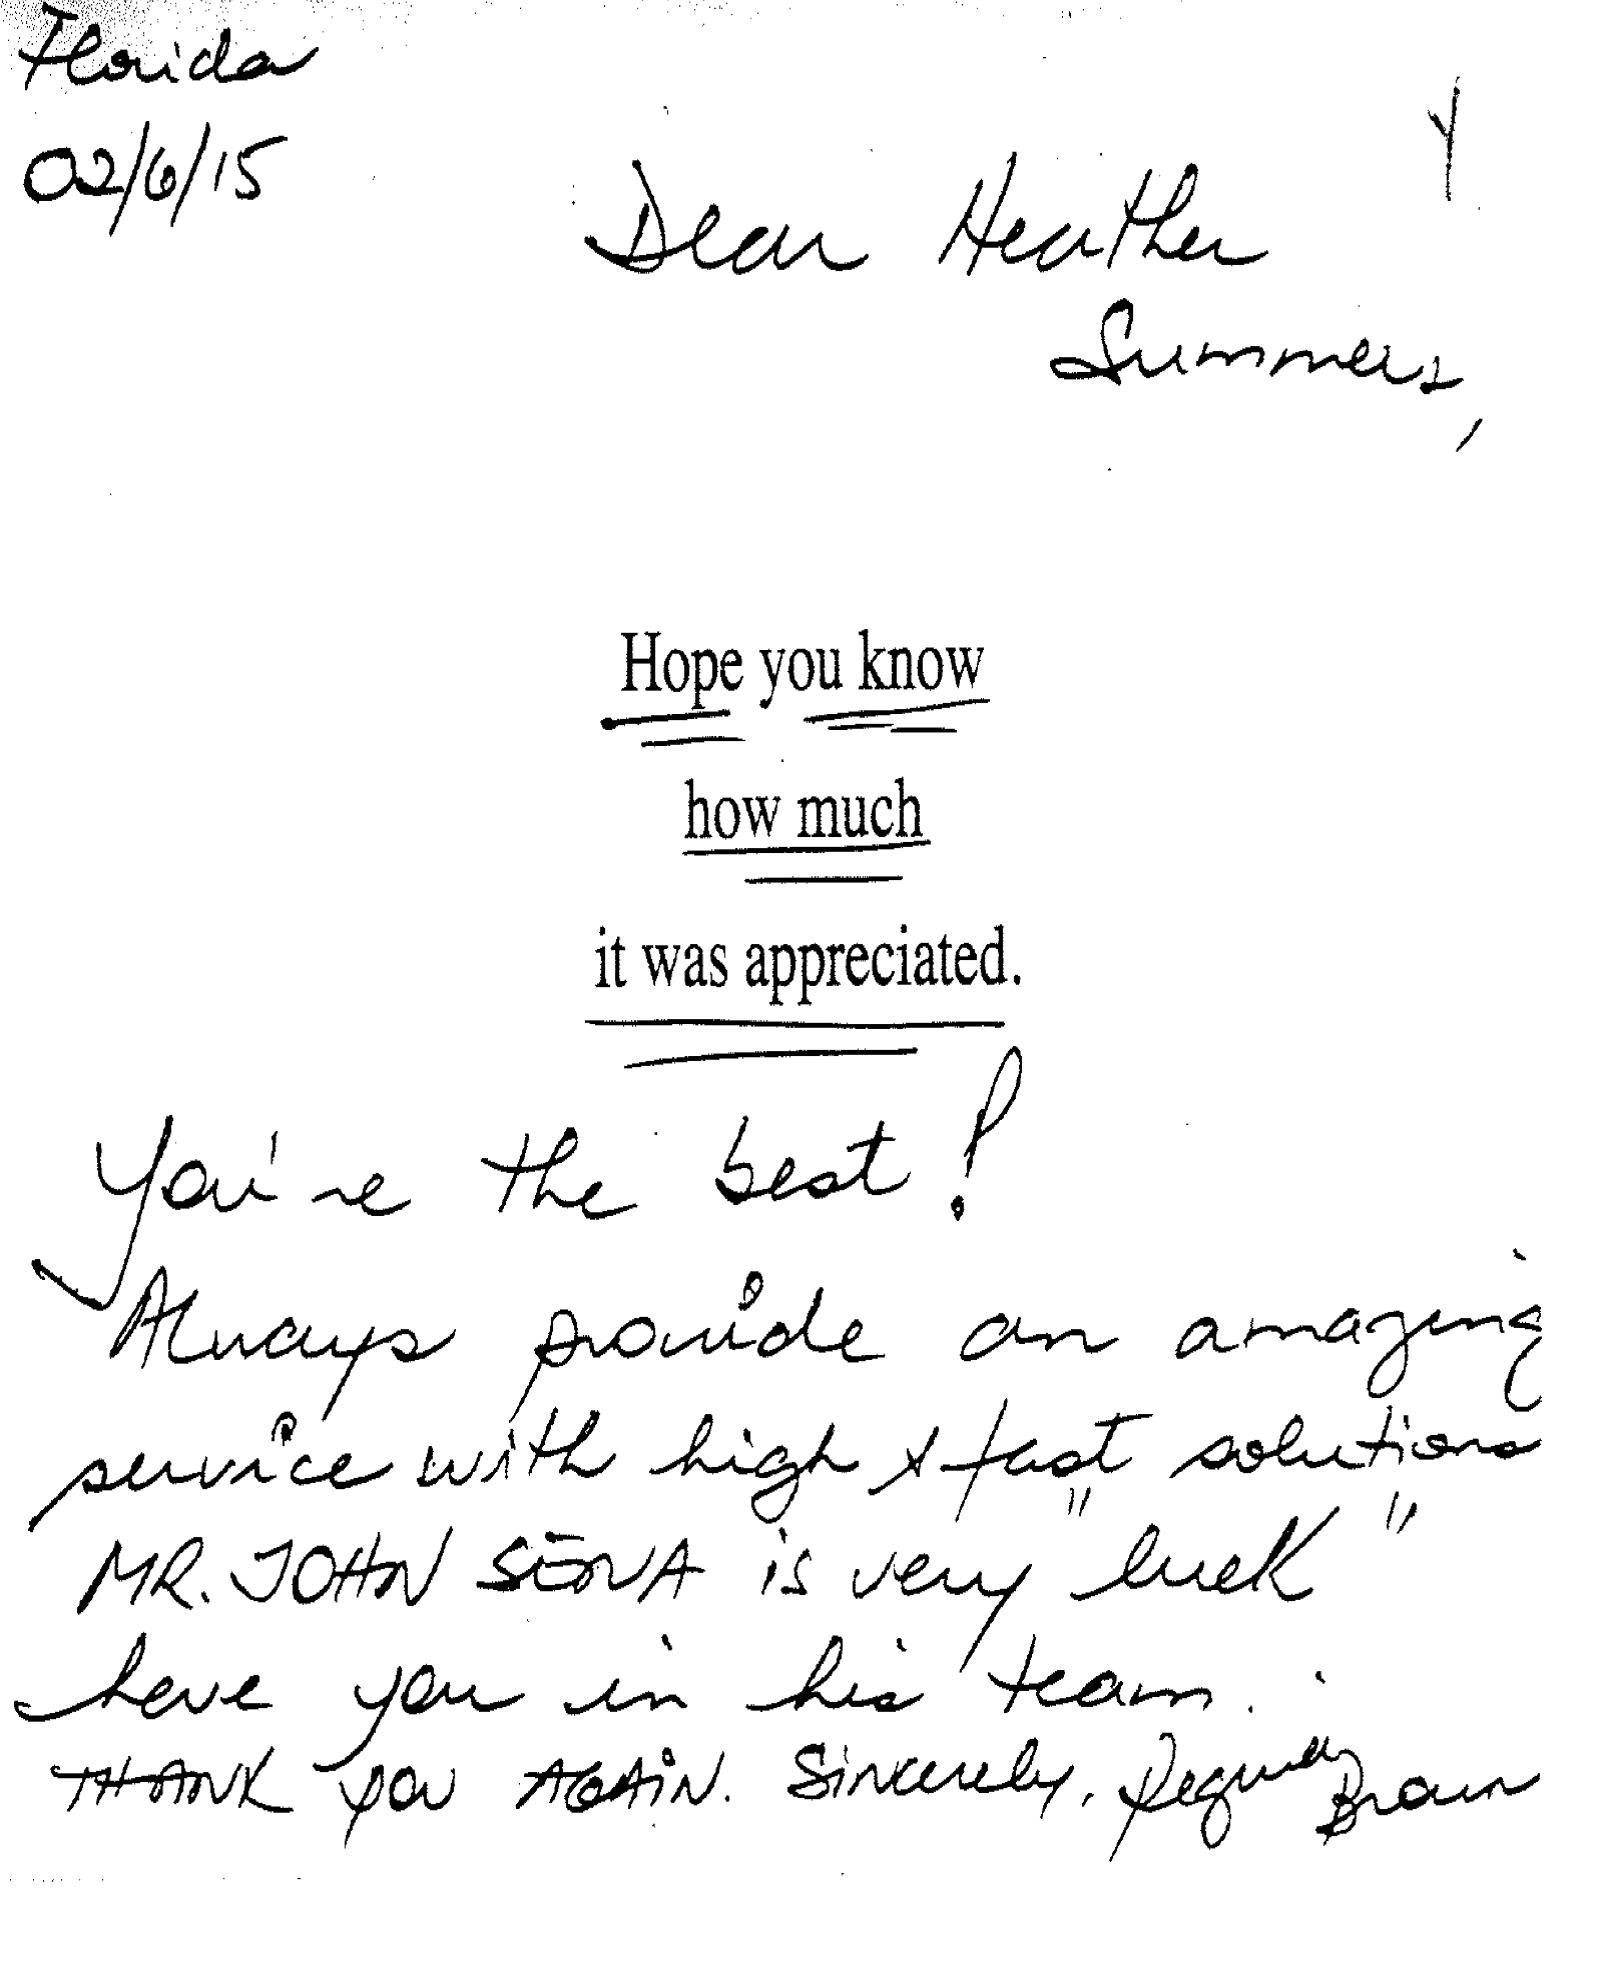 Florida
02/6/15
Dear Heather
Summers,
Hope you know
how much
it was appreciated.
You're the best!
Always provide an amazing
service with high & fast solutions
MR. JOHN is very "luck"
have you in his team.
THANK YOU AGAIN. Sincerely, Brown